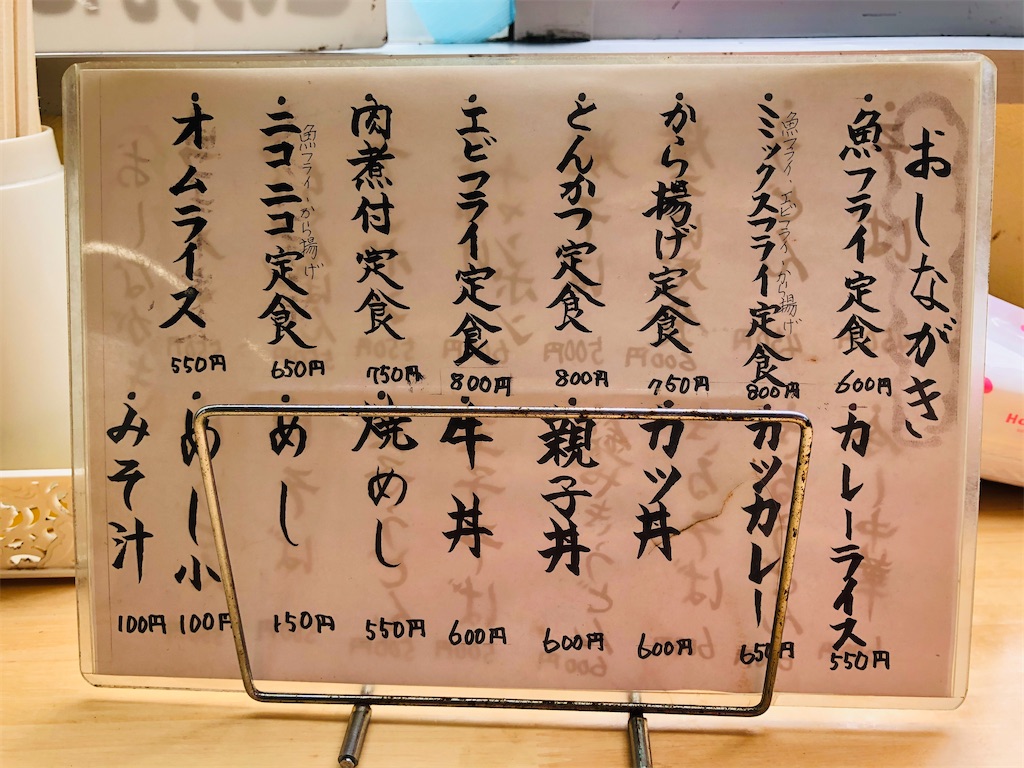 おしながき
魚フライ定食
600円
ミックスフライ定食
魚フライ エビフライ から揚げ
800円
から揚げ定食
750円
とんかつ定食
800円
エビフライ定食
800円
肉煮付定食
750円
ニコニコ定食
魚フライ から揚げ
650円
オムライス
550円
カレーライス
550円
カツカレー
650円
カツ丼
600円
親子丼
600円
牛丼
600円
焼めし
550円
めし
150円
めし小
100円
みそ汁
100円